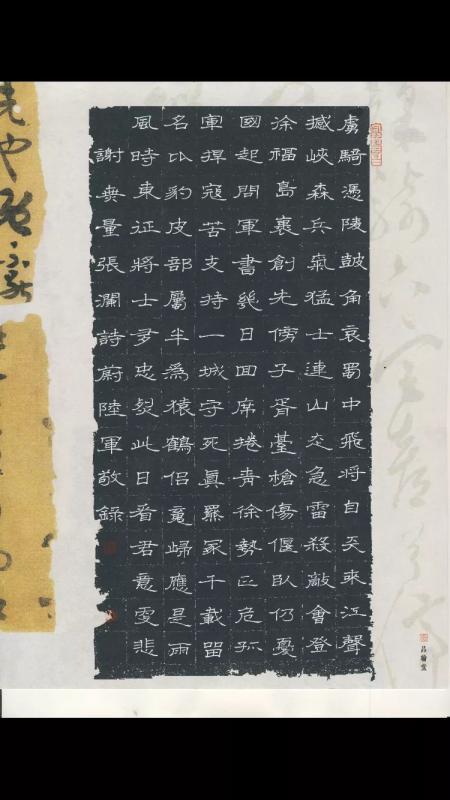 虜騎憑陵鼓角哀蜀中飛將自天來江聲
撼峽森兵氣猛士連山交急雷殺敵會登
徐福島裹創先傍子胥臺槍傷偃臥仍憂
國起問軍書幾日回席捲青徐勢正危孤
軍捍寇苦支持一城守死真羆冢千載留
名比豹皮部屬半為猿鶴侶魂歸應是雨
風時東征將士多忠裂此日看君意更悲
謝無量張瀾詩蔚陸軍敬錄